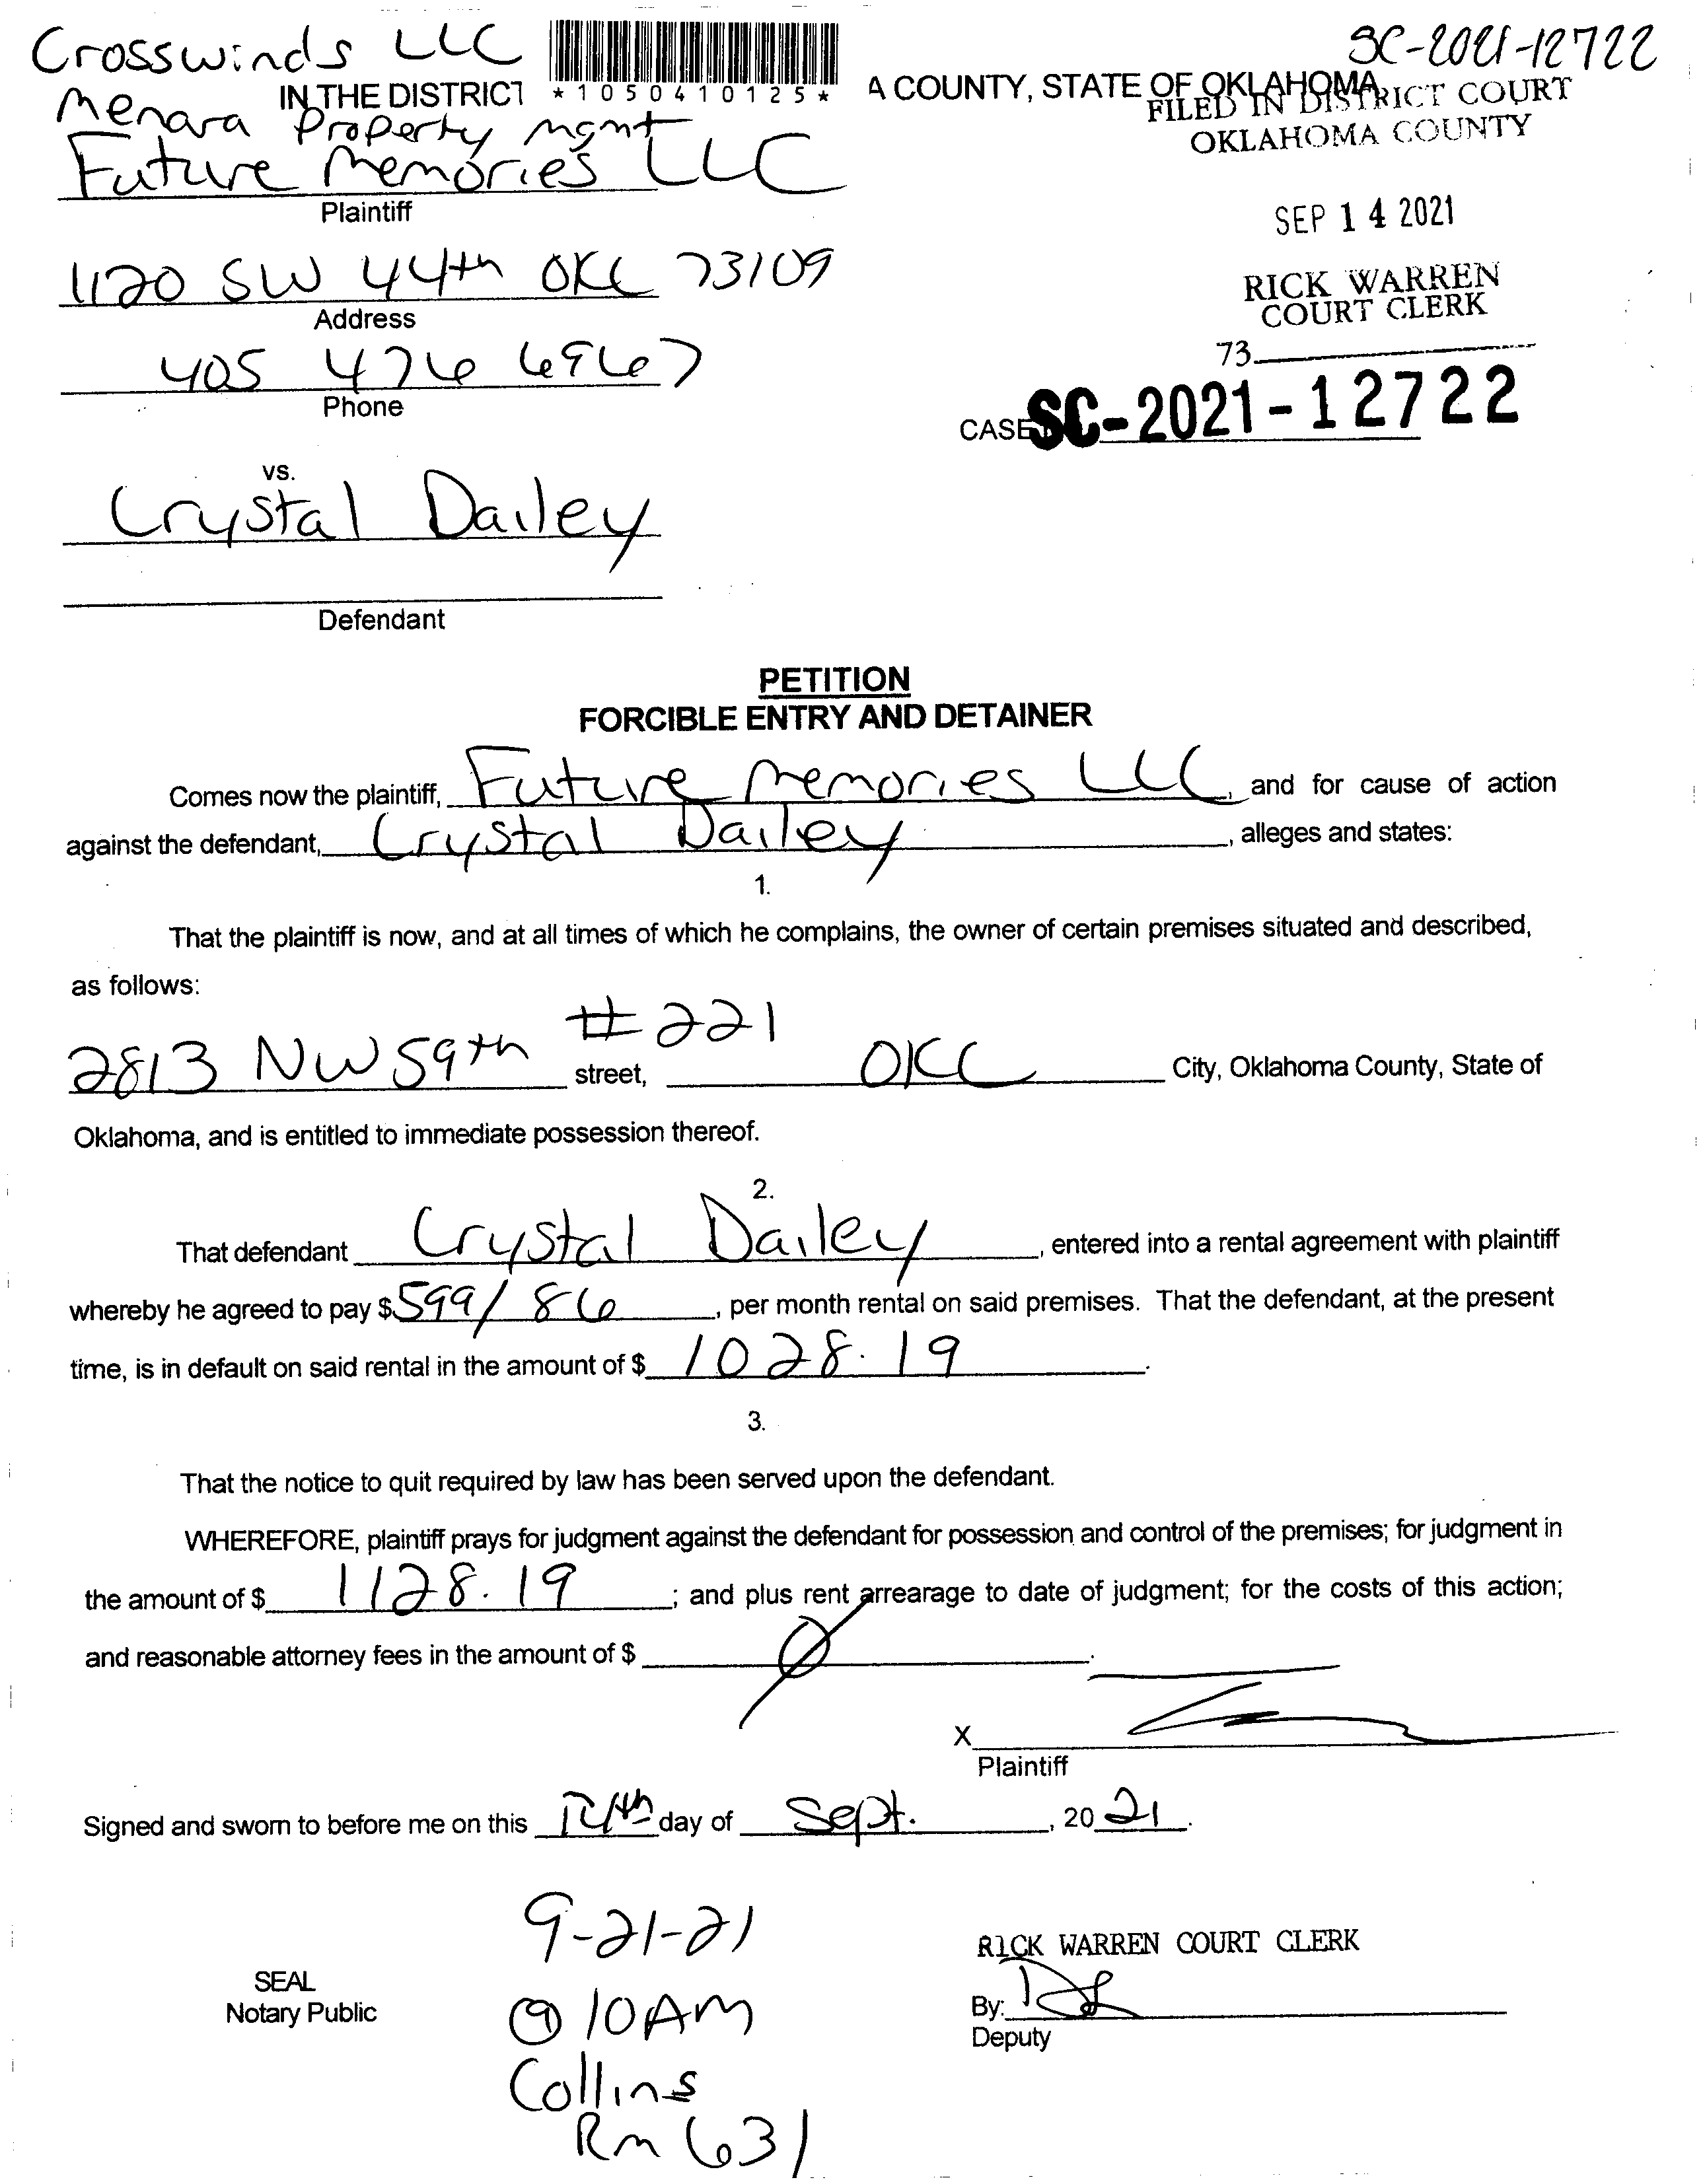 Crosswinds LLC
SC-2021-12722
IN THE DISTRICT
*1050410125*
A COUNTY, STATE OF OKLAHOMA
Menara Property Mgmt
FILED IN DISTRICT COURT
OKLAHOMA COUNTY
Future Memories LLC
Plaintiff
SEP 14 2021
1120 SW 44th OKC 73109
Address
RICK WARREN
COURT CLERK
405 476 6967
Phone
73
CASE SC-2021-12722
vs.
Crystal Dailey
Defendant
PETITION
FORCIBLE ENTRY AND DETAINER
Comes now the plaintiff, Future Memories LLC, and for cause of action
against the defendant, Crystal Dailey, alleges and states:
1.
That the plaintiff is now, and at all times of which he complains, the owner of certain premises situated and described,
as follows:
2813 NW 59th #221 street, OKC City, Oklahoma County, State of
Oklahoma, and is entitled to immediate possession thereof.
2.
That defendant Crystal Dailey, entered into a rental agreement with plaintiff
whereby he agreed to pay $599/86, per month rental on said premises. That the defendant, at the present
time, is in default on said rental in the amount of $ 1028.19.
3.
That the notice to quit required by law has been served upon the defendant.
WHEREFORE, plaintiff prays for judgment against the defendant for possession and control of the premises; for judgment in
the amount of $ 1128.19; and plus rent arrearage to date of judgment; for the costs of this action;
and reasonable attorney fees in the amount of $ 0.
X
Plaintiff
Signed and sworn to before me on this 14th day of Sept., 2021.
9-21-21
@ 10AM
Collins
Rm 631
SEAL
Notary Public
RICK WARREN COURT CLERK
By:
Deputy